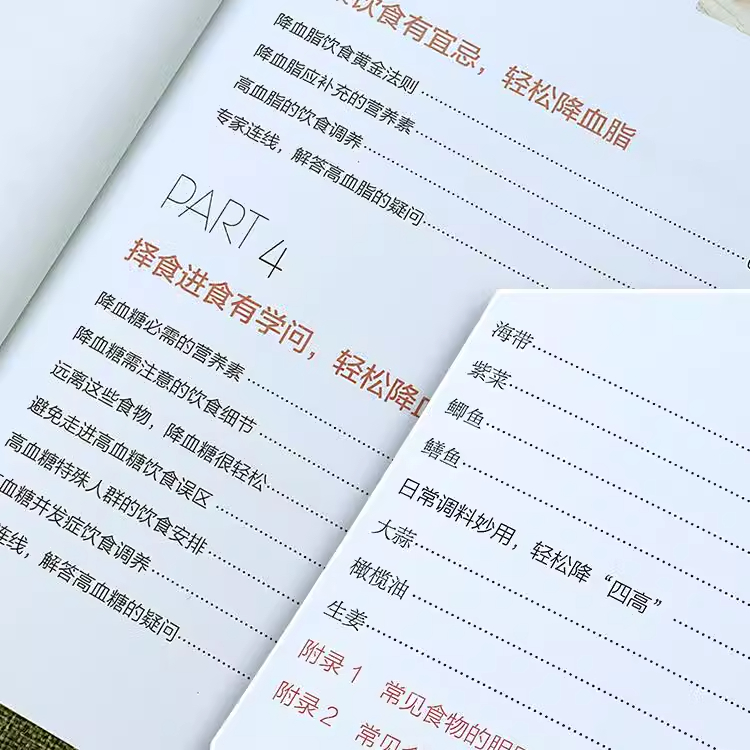 饮食有宜忌，轻松降血脂
降血脂饮食黄金法则
降血脂应补充的营养素
高血脂的饮食调养
专家连线，解答高血脂的疑问
PART 4
择食进食有学问，轻松降
降血糖必需的营养素
降血糖需注意的饮食细节
远离这些食物，降血糖很轻松
避免走进高血糖饮食误区
高血糖特殊人群的饮食安排
血糖并发症饮食调养
连线，解答高血糖的疑问
海带
紫菜
鲫鱼
鳝鱼
日常调料妙用，轻松降“四高”
大蒜
橄榄油
生姜
附录 1 常见食物的胆
附录 2 常见食